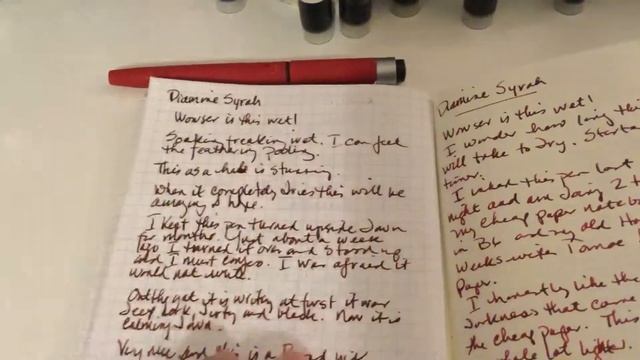 Diamine Syrah
Wowser is this wet!
Soaking freaking wet. I can feel
the feathering
This as a whole is stunning.
When it completely dries this will be
amazing I hope.
I kept this pen turned upside down
for months. Just about a week
ago I turned it over and stood up
and I must confess. I was afraid it
would not write.
it is writing at first it was
deep dark, dirty and black. Now it is
calming down.
Very nice and this is a
Diamine Syrah
Wowser is this wet!
I wonder how long this
will take to dry. Started
timer.
I inked this pen last
night and am doing 2
my cheap paper notebook
in B6 and my old
weeks writer Tomoe
Paper.
I honestly like the
darkness that came
the cheap paper. This